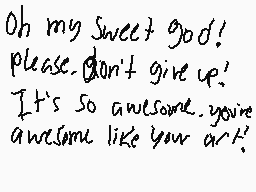 Oh my sweet god!
please. don't give up!
It's so awesome. you're
awesome like your art!